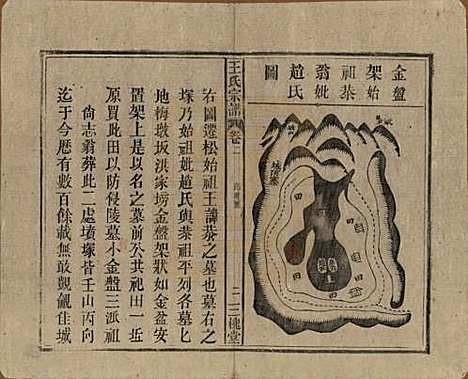 金盤
架始
祖棻
翁妣
趙氏
圖
田
田
田
王氏宗譜
卷二
二
三槐堂
右圖遷松始祖王諱棻之墓也墓右一
塚乃始祖妣趙氏與棻祖平列各墓匕
地梅墩坂洪家塝金盤架狀如金盆安
置架上是以名之墓前公共祀田一近
原買此田以防侵陵墓小金盤三派祖
尙志翁葬此二處墳塚皆壬山丙向
迄于今歷有數百餘載無敢覬覦佳城